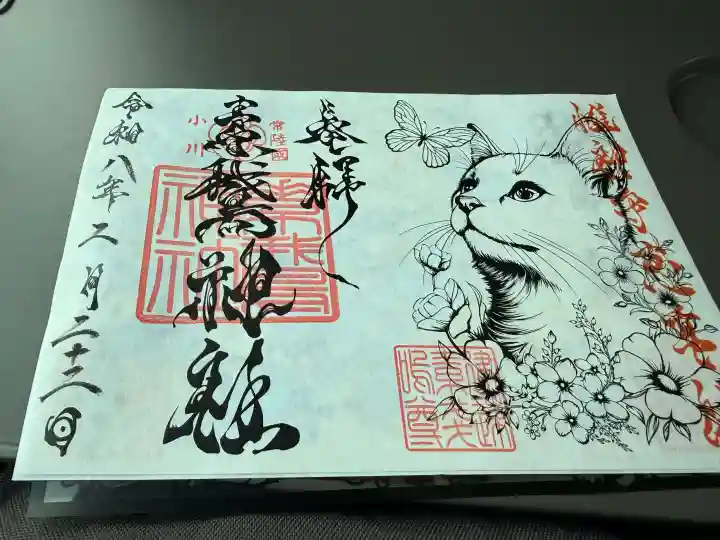 奉拝
常陸國
小川
素鵞神社
素鵞神社
令和八年二月二十三日
建速
素戔
嗚尊